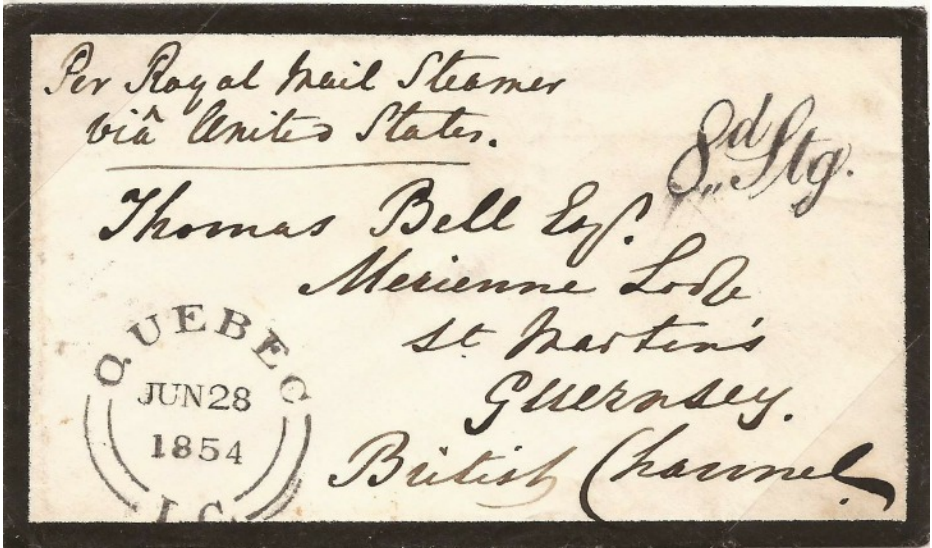 Per Royal Mail Steamer
viâ United States.
8d Stg.
Thomas Bell Esqr.
Merienne Lodge
St Martin's
Guernsey.
British Channel.
QUEBEC
JUN 28
1854
L.C.